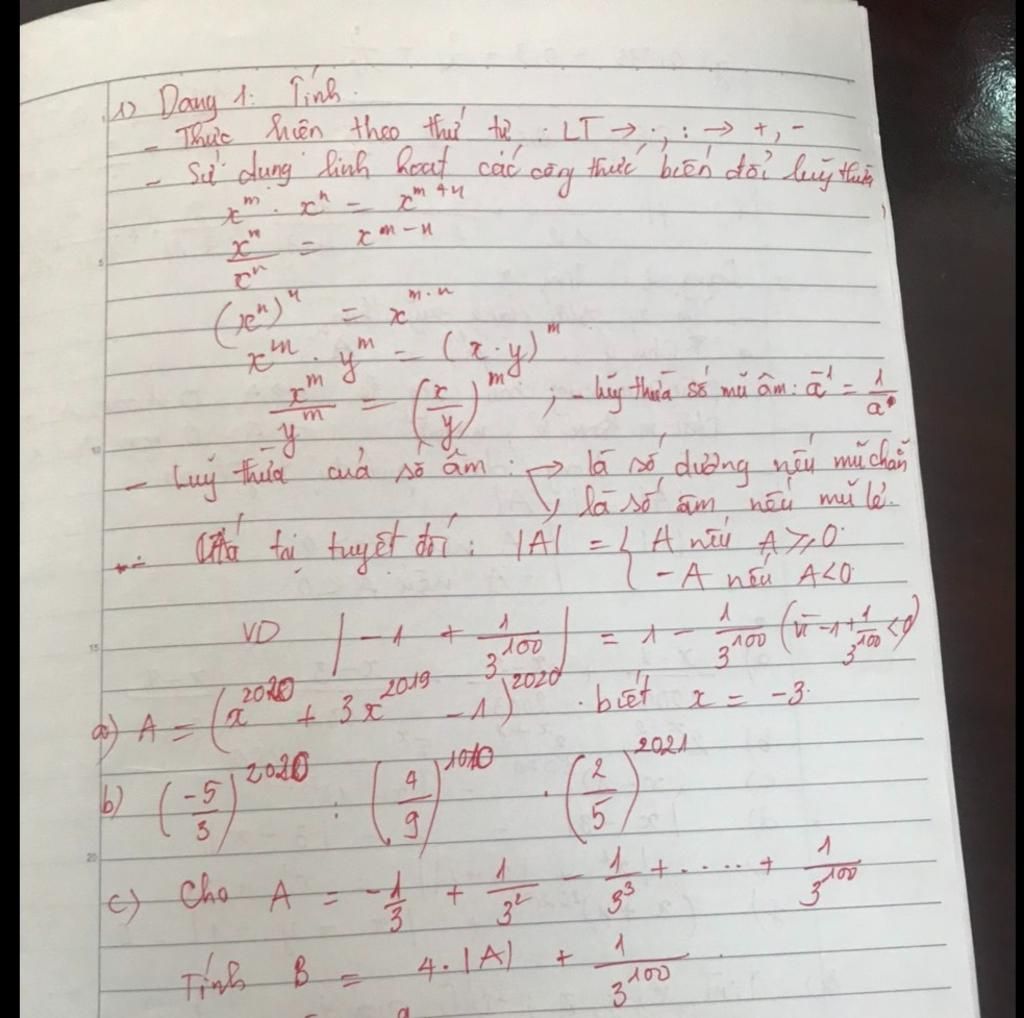 1) Dạng 1: Tính.
- Thực hiện theo thứ tự : LT → ., : → +, -
- Sử dụng linh hoạt các công thức biến đổi luỹ thừa
x^m . x^n = x^{m+n}
x^m / x^n = x^{m-n}
(x^n)^n = x^{m.n}
x^m . y^m = (x.y)^m
x^m / y^m = (x/y)^m ; - luỹ thừa số mũ âm: a^{-1} = 1/a
- Luỹ thừa của số âm : → là số dương nếu mũ chẵn
↘ là số âm nếu mũ lẻ.
- Giá trị tuyệt đối : |A| = { A nếu A ⩾ 0
-A nếu A < 0
VD |-1 + 1/3^{100}| = 1 - 1/3^{100} (vì -1 + 1/3^{100} < 0)
a) A = (x^{2020} + 3x^{2019} - 1)^{2020} . biết x = -3.
b) (-5/3)^{2020} : (4/9)^{1010} . (2/5)^{2021}
c) Cho A = -1/3 + 1/3^2 - 1/3^3 + ..... + 1/3^{100}
Tính B = 4.|A| + 1/3^{100}.